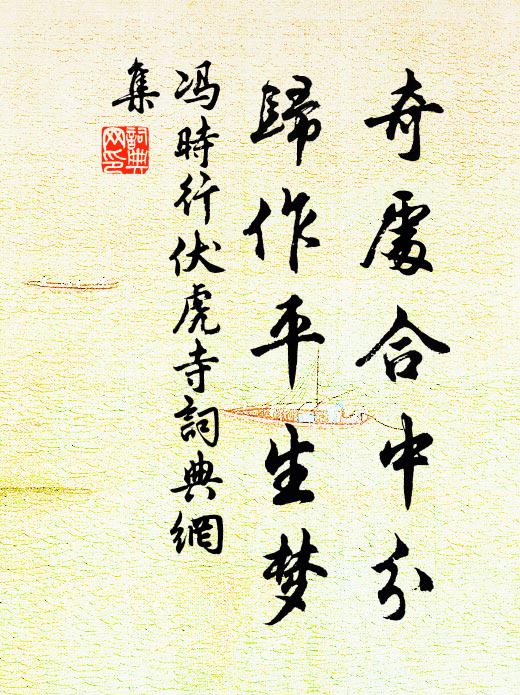 奇處合中分
歸作平生梦
冯時行伏虎寺詞典網
集
詞典網印